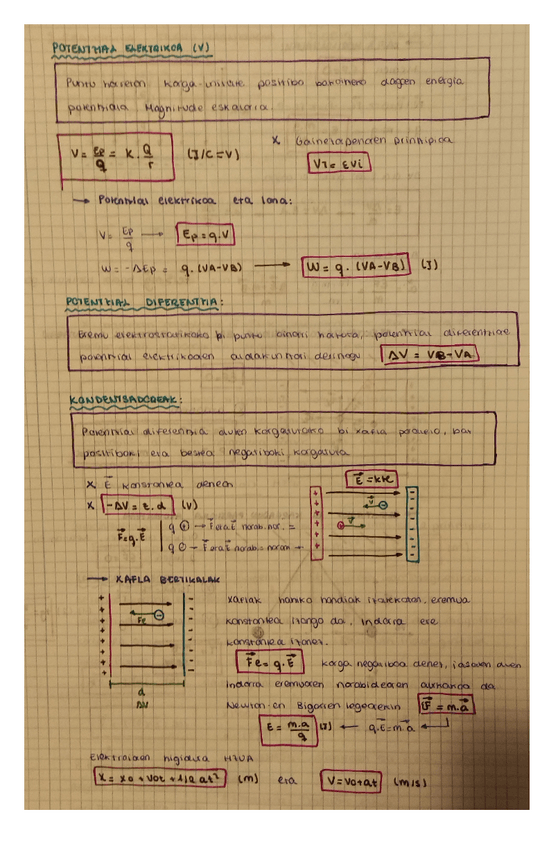 POTENTZIAL ELEKTRIKOA (V)
Puntu horretan karga-unitate positibo bakoitzeko dagoen energia
potentziala. Magnitude eskalarra.
V = Ep/q = K. Q/r (J/C = V)
x Gainezarpenaren printzipioa
VT = ΣVi
→ Potentzial elektrikoa eta lana:
V = Ep/q → Ep = q.V
W = -ΔEp = q. (VA-VB) → W = q. (VA-VB) (J)
POTENTZIAL DIFERENTZIA:
Eremu elektrostatikoko bi puntu oinarri hartuta, potentzial diferentziae
potentzial elektrikoaren aldakuntzari deritzogu ΔV = VB-VA
KONDENTSADOREAK:
Potentzial diferentzia duten kargatutako bi xafla paralelo, bat
positiboki eta bestea negatiboki kargatuta.
x E konstantea denean
E = kte
x -ΔV = E.d (V)
F=q.E
q ⊕ → F eta E norab. nor. =
q ⊖ → F eta E norab. = noran
→ XAFLA BERTIKALAK
Fe
d
ΔV
xaflak haniko handiak izatekotan, eremua
konstantea izango da, indarra ere
konstantea izanez.
Fe = q.E karga negatiboa denez, jasaten duen
indarra eremuaren norabidearen aurkakoa da
Newton-en Bigarren legearekin ΣF = m.a
E = m.a/q (J) ← q.E = m.a
Elektroiaren higidura HZUA
X = x0 + v0t + 1/2 at² (m) eta V = V0+at (m/s)